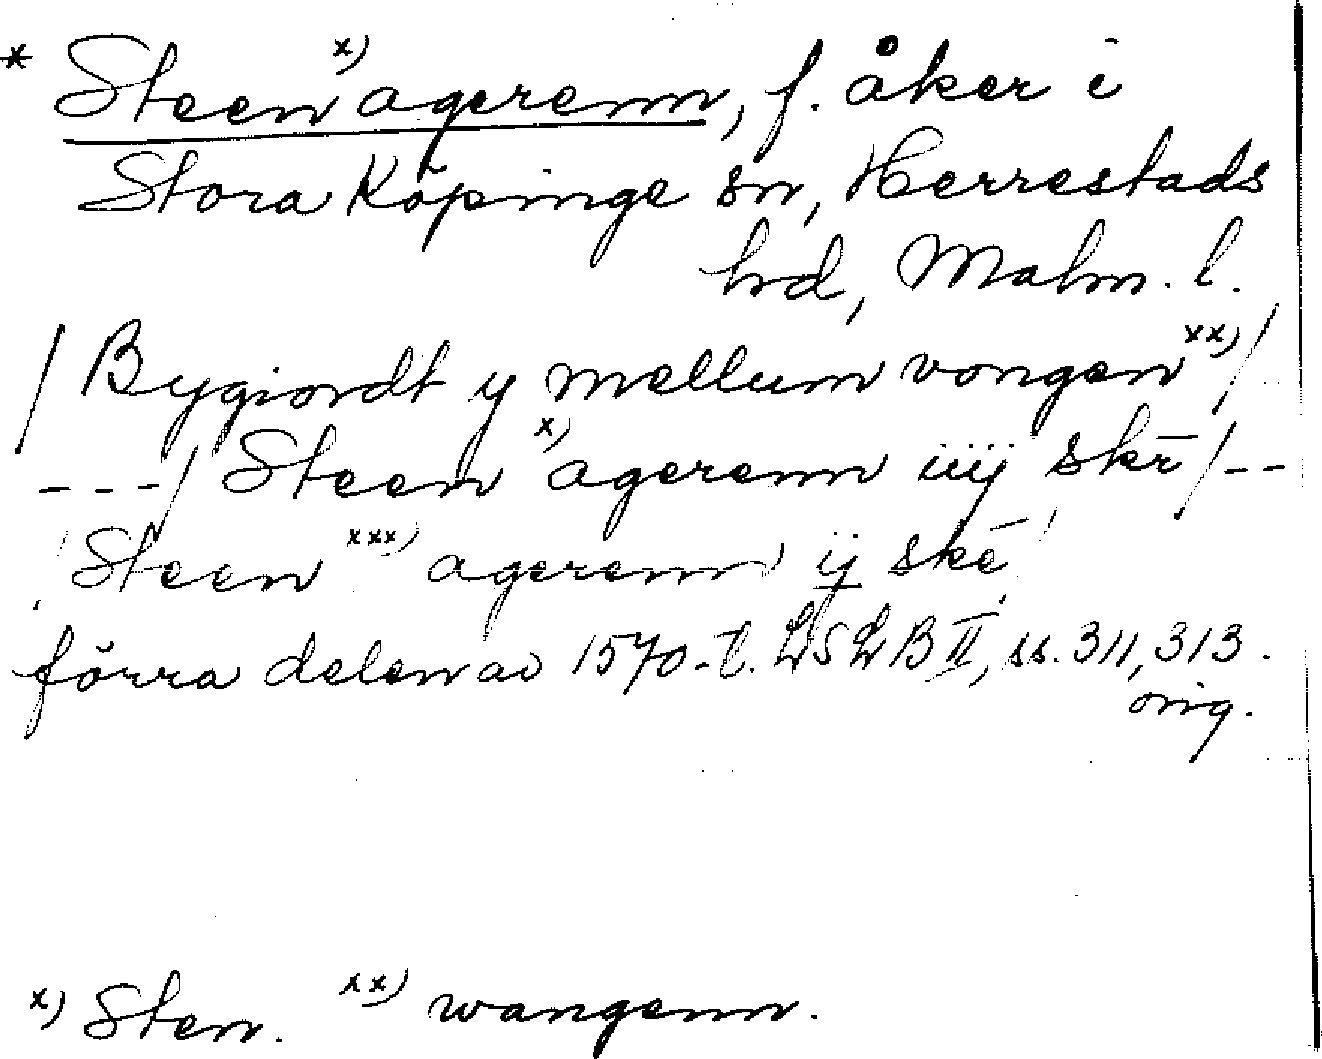 * Steen x) agerenn, f. åker i
Stora Köpinge sn, Herrestads
hd, Malm. l.
/ Bygiordt y mellum vongen xx) /
- - - / Steen x) agerenn iiij skr̄ / - -
/ Steen xxx) agerenn ij skē /
förra delen av 1570-t. LSLB II, ss. 311, 313.
orig.
x) Sten. xx) wangenn.